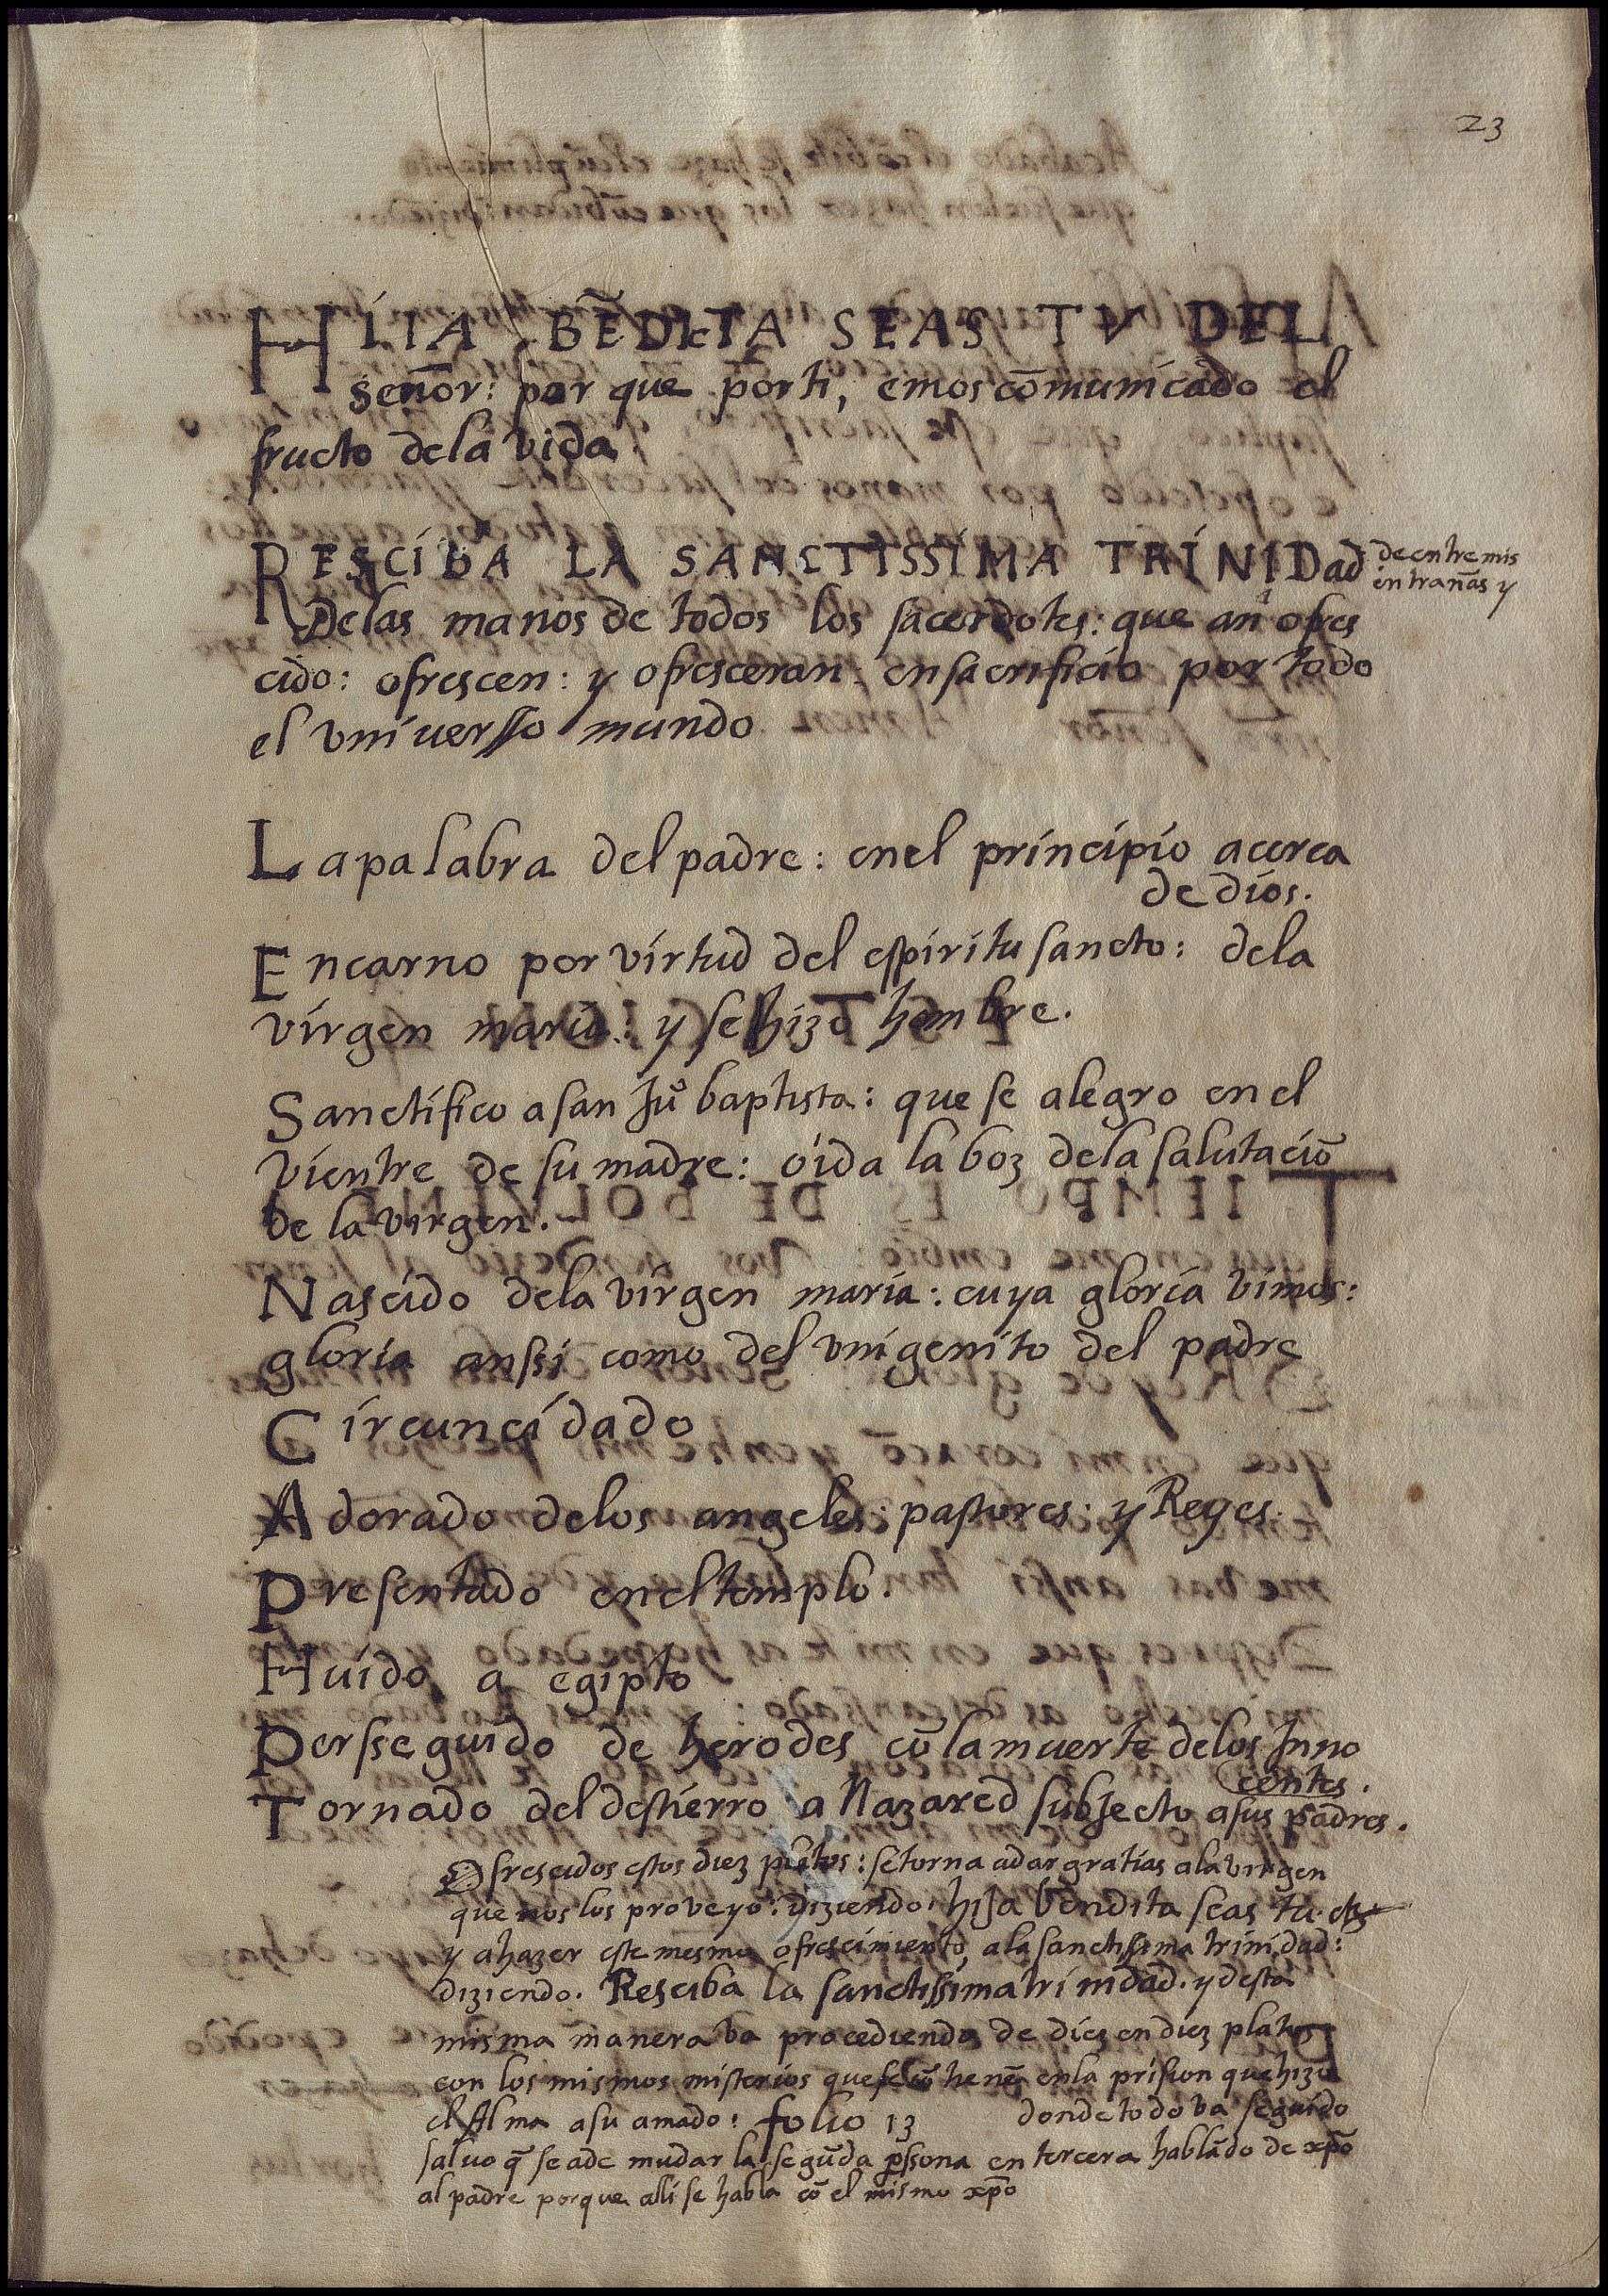 23
HIIA BÊDICTA SEAS TV DEL
señor: por que por ti, emos cõmunicado el
fructo dela vida.
RESCIBA LA SANCTISSIMA TRINIDad
de entre mis
entrañas y
Delas manos de todos los sacerdotes: que an ofres
cido: ofrescen: y ofresceran: en sacrificio por todo
el vniuersso mundo
La palabra del padre: enel principio acerca
de dios.
Encarno por virtud del espiritu sancto: dela
virgen maria: y se hizo hombre.
Sanctifico a san Juº baptista: que se alegro en el
vientre de su madre: oida la boz dela salutaciõ
de la virgen.
Nascido dela virgen maria: cuya gloria vimos:
gloria anssi como del vnigenito del padre
Circuncidado
Adorado delos angeles: pastores: y Reyes.
Presentado enel templo.
Huido a egipto
Persseguido de herodes cõ la muerte delos Inno
centes.
Tornado del destierro a Nazared subjecto a sus padres.
Ofrescidos estos diez platos: se torna a dar gratias ala virgen
que nos los proveyo: diziendo: hija bendita seas tu. etc
y a hazer este mesmo ofrescimiento, ala sanctissima trinidad:
diziendo. Resciba la sanctissima trinidad. y desta
misma manera va procediendo de diez en diez platos
con los mismos misterios que se cõtienẽ enla prision que hizo
el Alma a su amado: folio 13 donde todo va seguido
saluo q̃ se a de mudar la segũda perssona en tercera hablãdo de xp̃o
al padre porque alli se habla cõ el mismo xp̃o